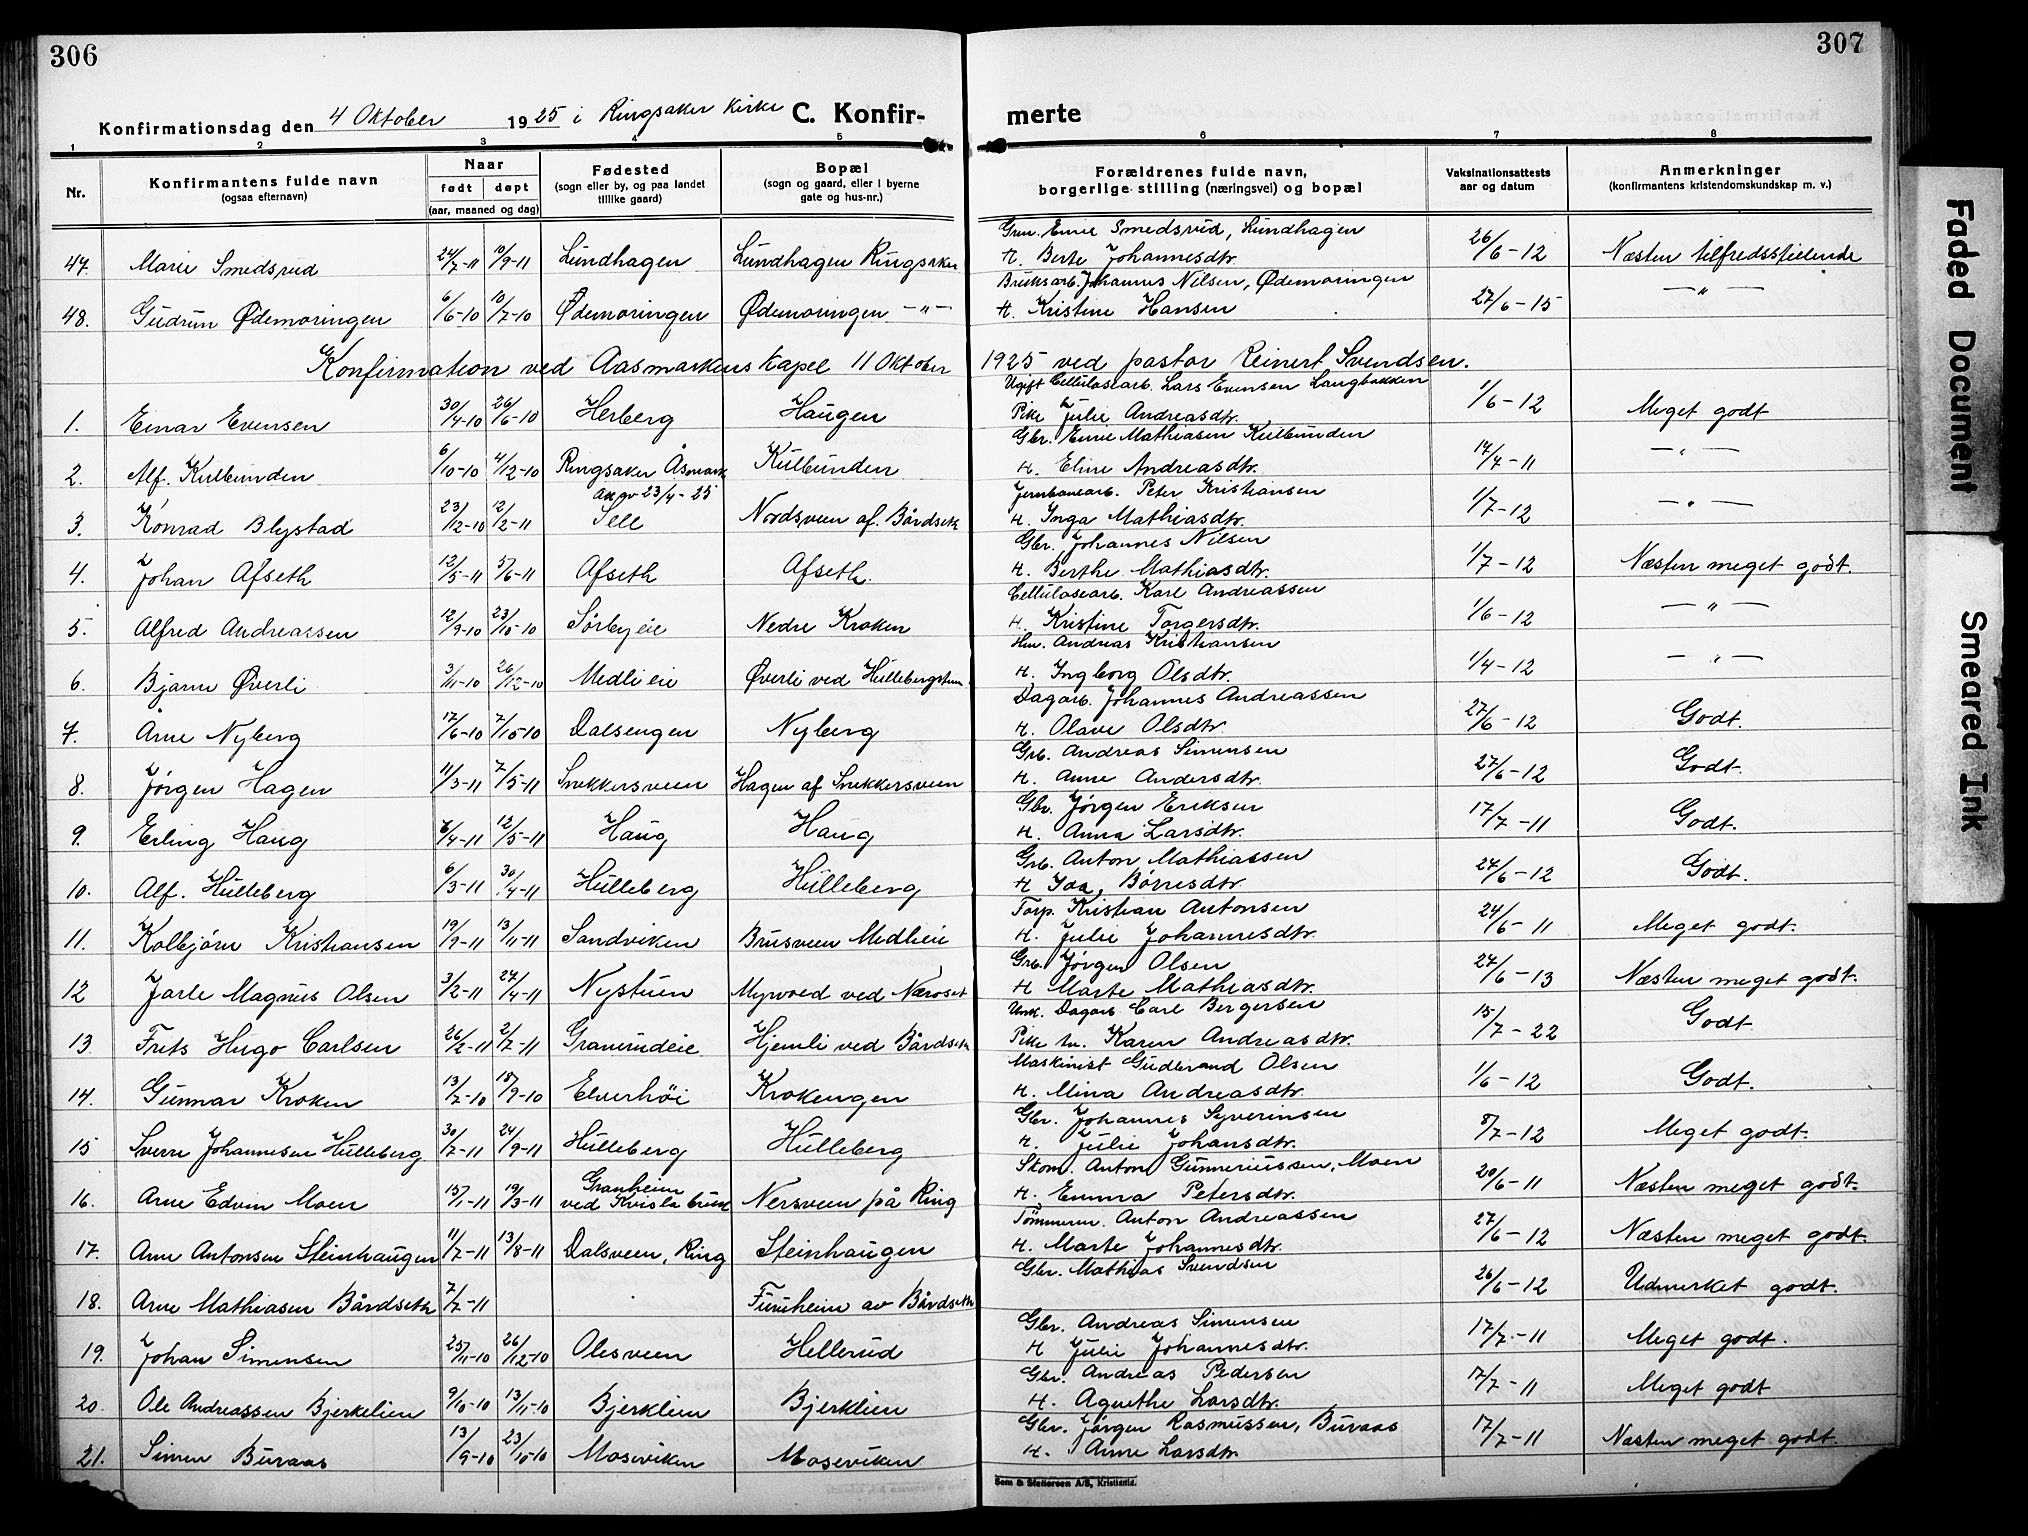 306
307
Konfirmationsdag den 4 Oktober 1925 i Ringsaker Kirke C. Konfir-
merte
1 2 3 4 5 6 7 8
Nr. Konfirmantens fulde navn (ogsaa efternavn) Naar født døpt (aar, maaned og dag) Fødested (sogn eller by, og paa landet tillike gaard) Bopæl (sogn og gaard, eller i byerne gate og hus-nr.) Forældrenes fulde navn, borgerlige stilling (næringsvei) og bopæl Vaksinationsattests aar og datum Anmerkninger (konfirmantens kristendomskundskap m. v.)
Grm. Emil Smedsrud, Lundhagen
47. Marie Smedsrud 24/7-11 10/9-11 Lundhagen Lundhagen Ringsaker H. Berte Johannesdtr. 26/6-12 Næsten tilfredsstielende
Bruksarb. Johannes Nilsen, Ødemoringen
48. Gudrun Ødemoringen 6/6-10 10/7-10 Ødemoringen Ødemoringen -"- H. Kristine Hansen 27/6-15 -"-
Konfirmation ved Aasmarkens Kapel 11 Oktober 1925 ved pastor Reinert Svendsen.
Ugift Cellulosearb. Lars Evensen Langbakken
1. Einar Evensen 30/4-10 26/6-10 Herberg Haugen Pike Julie Andreasdtr. 1/6-12 Meget godt
Gbr. Emil Mathiasen Kulbunden
2. Alf. Kulbunden 6/10-10 4/12-10 Ringsaker Åsmark Kulbunden H. Eline Andreasdtr. 14/4-11 -"-
23/4-25 Jernbanearb. Peter Kristiansen
3. Konrad Blystad 23/12-10 12/2-11 Sell Nordsveen af. Bårdseth H. Inga Mathiasdtr. 1/7-12 -"-
Gbr. Johannes Nilsen
4. Johan Afseth 12/5-11 5/6-11 Afseth Afseth. H. Berthe Mathiasdtr. 1/7-12 Næsten meget godt.
Cellulosearb. Karl Andreassen
5. Alfred Andreassen 12/9-10 23/10-10 Sørbyeie Nedre Kroken H. Kristine Torgersdtr. 1/6-12 -"-
Hm. Andreas Kristiansen
6. Bjarne Øverli 3/11-10 26/12-10 Medli eie Øverli ved Hullebergstuen H. Ingborg Olsdtr. 1/4-12 -"-
Dagarb. Johannes Andreassen
7. Arne Nyberg 17/6-10 7/10-10 Dalsengen Nyberg H. Olave Olsdtr. 27/6-12 Godt.
Grb. Andreas Simensen
8. Jørgen Hagen 11/3-11 7/5-11 Snekkersveen Hagen af Snekkersveen H. Anne Andersdtr. 27/6-12 Godt.
Gbr. Jørgen Eriksen
9. Erling Haug 6/4-11 12/5-11 Haug Haug H. Anna Larsdtr. 17/7-11 Godt.
Grb. Anton Mathiassen
10. Alf. Hulleberg 6/3-11 30/4-11 Hulleberg Hulleberg H Ida, Børresdtr. 27/6-12 Godt.
Torp. Kristian Antonsen
11. Kolbjørn Kristiansen 19/9-11 13/11-11 Sandviken Brusveen Medlieie H. Julie Johannesdtr. 24/6-11 Meget godt.
Grb. Jørgen Olsen
12 Jarle Magnus Olsen 3/2-11 27/4-11 Nystuen Myrvold ved Næroset H Marte Mathiasdtr. 27/6-13 Næsten meget godt.
Unk. Dagarb. Carl Bergersen
13. Frits Hugo Carlsen 26/2-11 2/7-11 Gravrudeie Hjemli ved Bårdseth Pike hu. Karen Andreasdtr. 15/7-22 Godt
Maskinist Gudbrand Olsen
14. Gunnar Kroken 13/7-10 18/9-10 Elverhöi Krokengen H. Mina Andreasdtr. 1/6-12 Godt.
Gbr. Johannes Syverinsen
15 Sverre Johannesen Hulleberg 30/7-11 24/9-11 Hulleberg Hulleberg H. Julie Johansdtr. 8/7-12 Meget godt.
Skom. Anton Gunneriussen, Moen
16. Arne Edvin Moen 15/1-11 19/3-11 Granheim ved Kvisla bruk Nersveen på Ring H. Emma Petersdtr. 20/6-11 Næsten meget godt.
Tømmerm. Anton Andreassen
17. Arne Antonsen Steinhaugen 11/7-11 13/8-11 Dalsveen, Ring Steinhaugen H. Marte Johannesdtr. 27/6-12 Næsten meget godt.
Gbr. Mathias Svendsen
18. Arne Mathiasen Bårdseth 7/7-11 Furuheim av Bårdseth 26/6-12 Udmerket godt.
Gbr. Andreas Simensen
19. Johan Simensen 25/11-10 26/12-10 Olesveen Hellerud H Julie Johannesdtr. 17/7-11 Meget godt.
Gbr. Andreas Pedersen
20. Ole Andreassen Bjerkelien 9/10-10 13/11-10 Bjerklien Bjerklien H. Agnethe Larsdtr. 17/7-11 Meget godt
Gbr. Jørgen Rasmussen, Buraas
21. Simen Buraas 13/9-10 23/10-10 Moseviken Moseviken H. Anne Larsdtr. 17/7-11 Næsten meget godt.
Sem & Stenersen A/S, Kristiania.
Faded Document
Smeared Ink